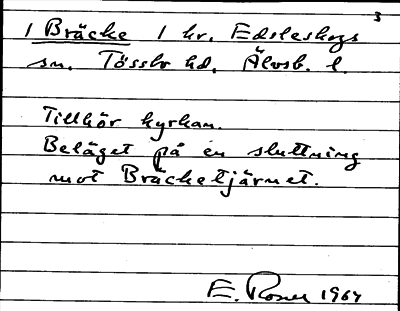 3
1 Bräcke 1 hr. Edsleskogs
sn. Tössbo hd. Älvsb. l.
Tillhör kyrkan.
Beläget på en sluttning
mot Bräcketjärnet.
E. Rosén 1964